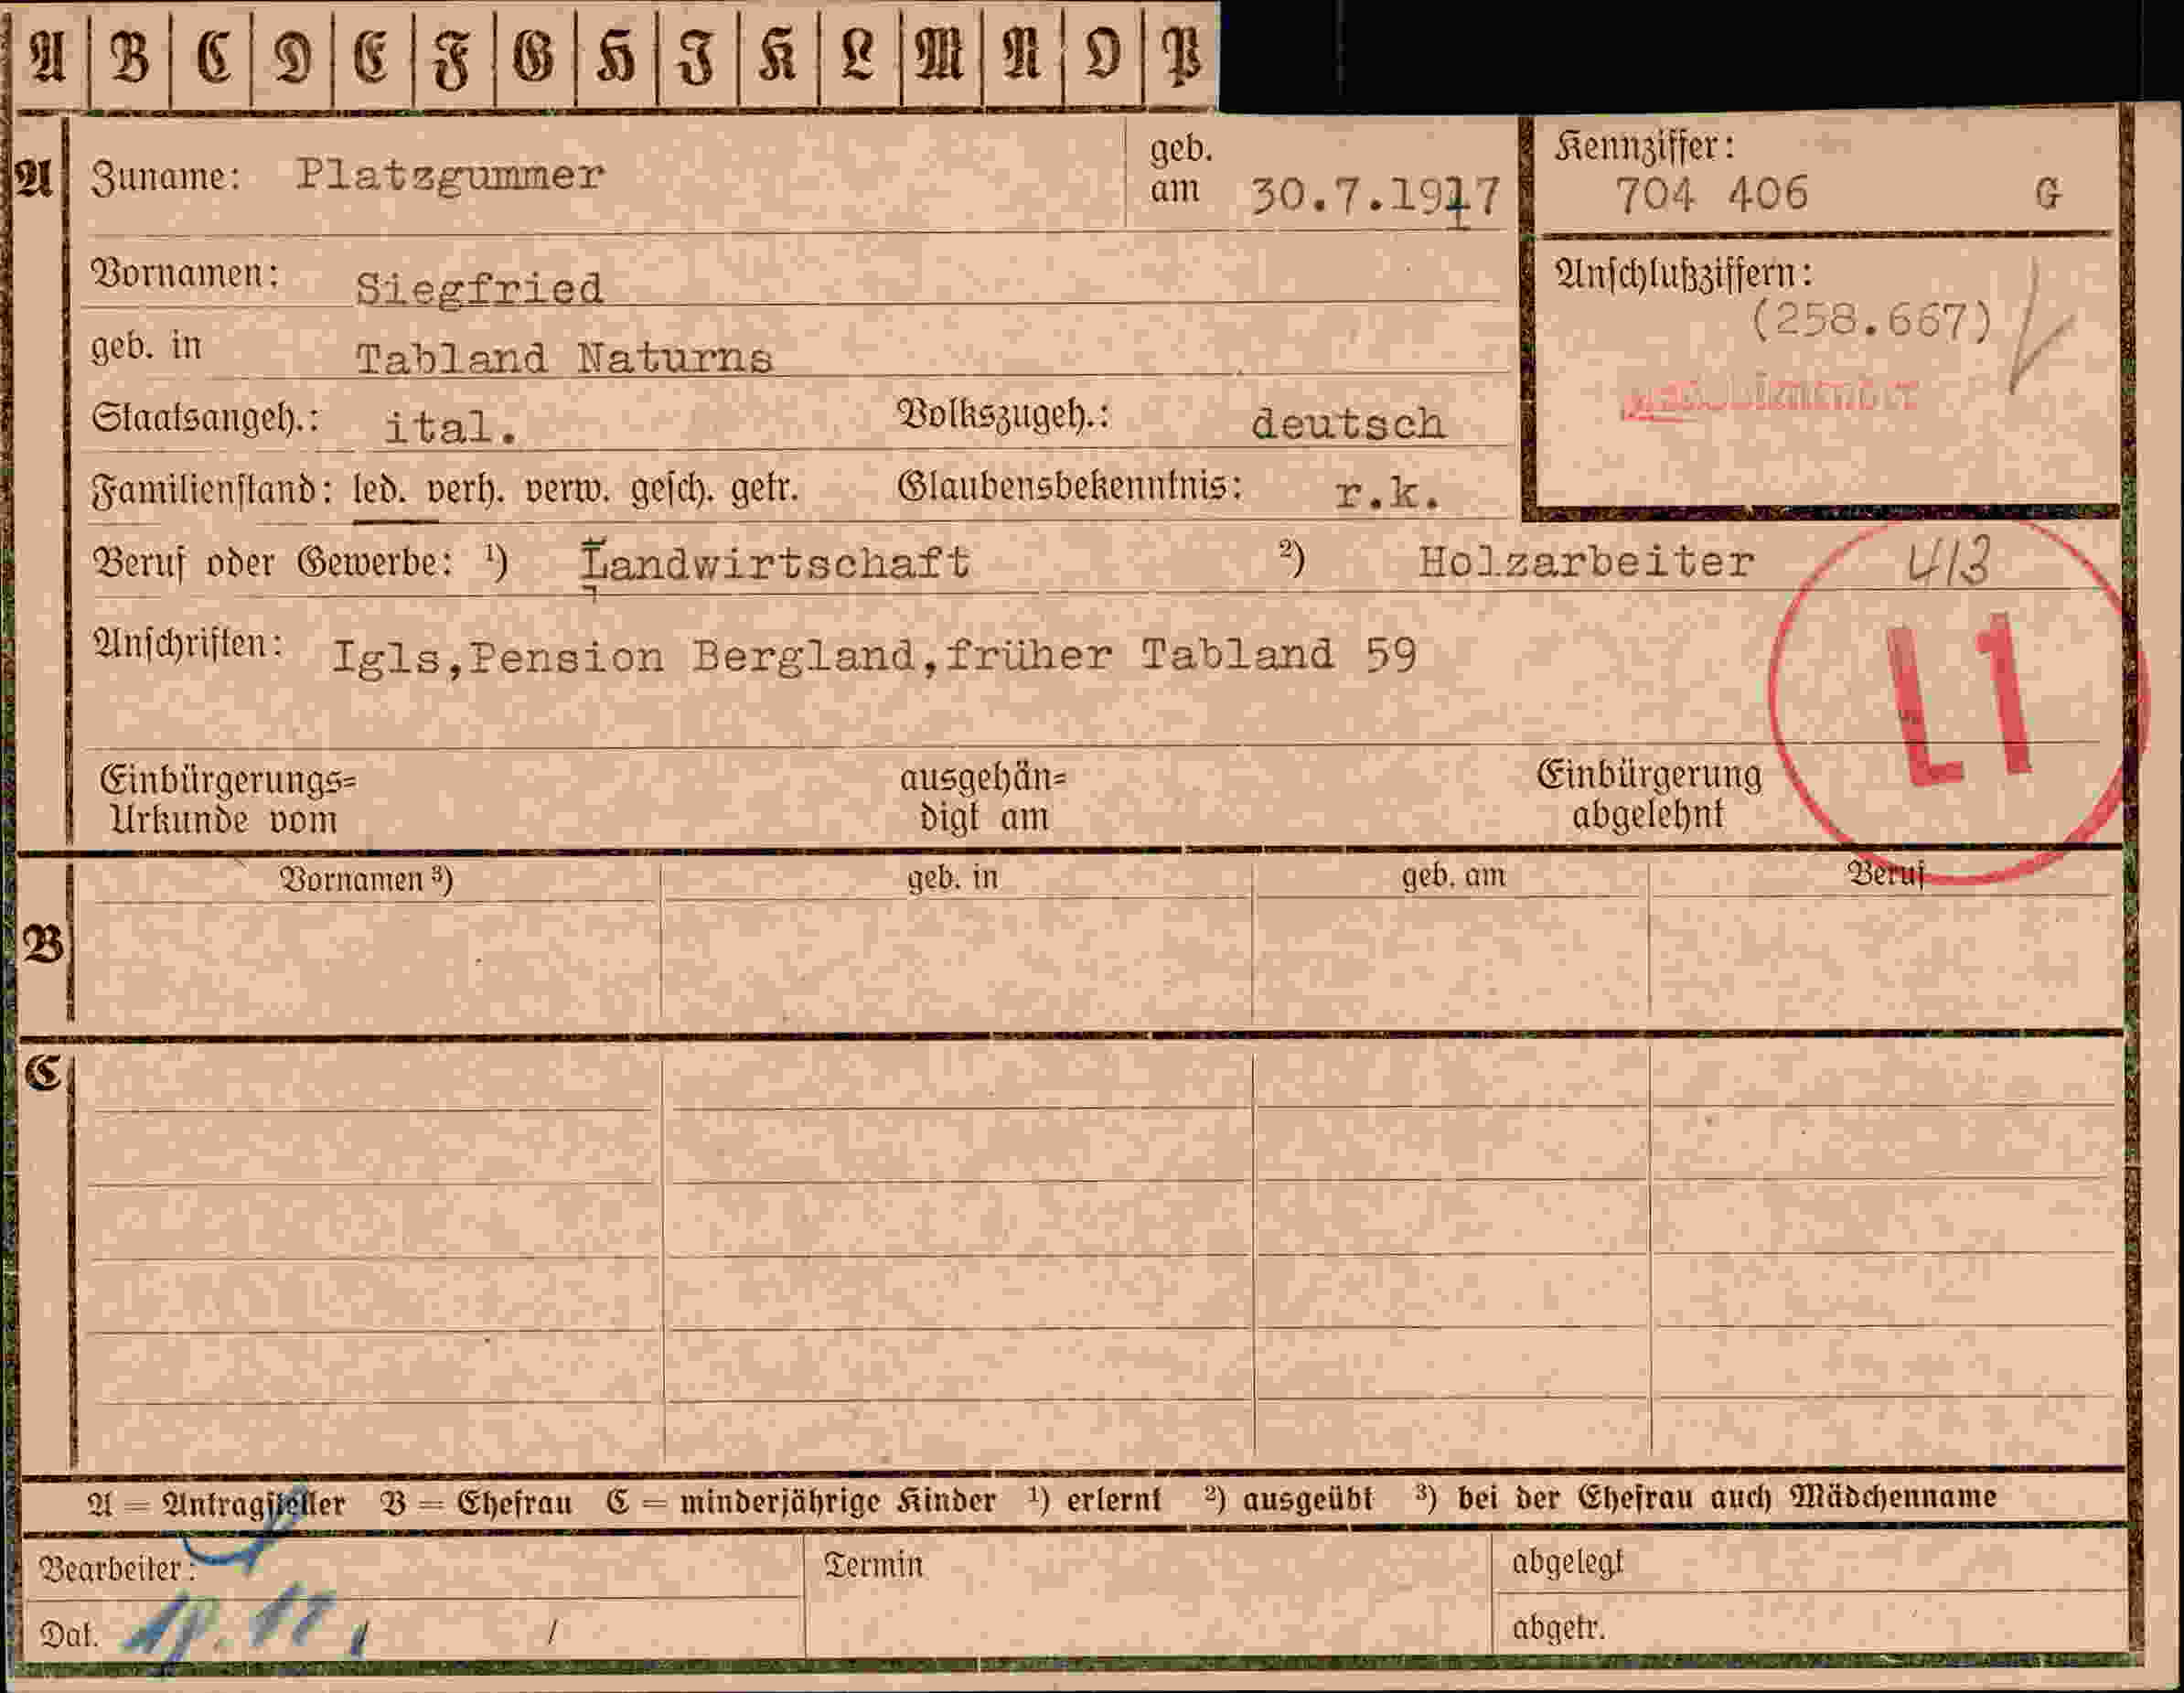 A B C D E F G H I K L M N O P
A Zuname: Platzgummer geb. am 30.7.1917
Kennziffer: 704 406 G
Vornamen: Siegfried
Anschlußziffern: (258.667)
geb. in Tabland Naturns
Staatsangeh.: ital. Volkszugeh.: deutsch
Familienstand: led. verh. verw. gesch. getr. Glaubensbekenntnis: r.k.
Beruf oder Gewerbe: ¹) Landwirtschaft ²) Holzarbeiter 413
Anschriften: Igls,Pension Bergland,früher Tabland 59
L1
Einbürgerungs= ausgehän= Einbürgerung
Urkunde vom digt am abgelehnt
Vornamen ³) geb. in geb. am Beruf
B
C
A = Antragsteller B = Ehefrau C = minderjährige Kinder ¹) erlernt ²) ausgeübt ³) bei der Ehefrau auch Mädchenname
Bearbeiter: Termin abgelegt
Dat. / / abgetr.